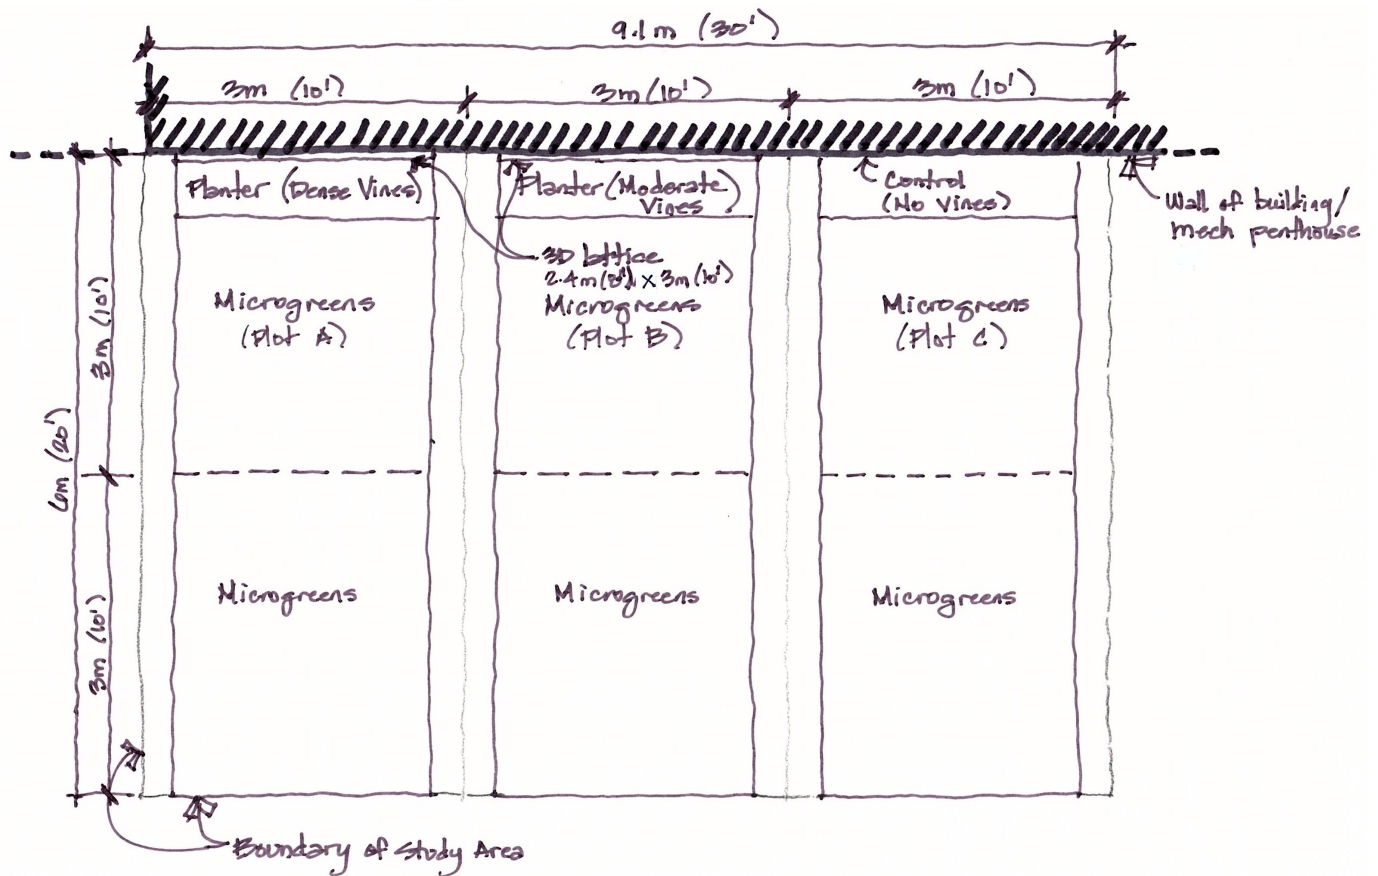 9.1m (30')
3m (10')
3m (10')
3m (10')
Planter (Dense Vines)
Planter (Moderate
Vines)
Control
(No Vines)
Wall of building/
mech penthouse
3D lattice
2.4m (8') x 3m (10')
Microgreens
(Plot A)
Microgreens
(Plot B)
Microgreens
(Plot C)
3m (10')
6m (20')
3m (10')
Microgreens
Microgreens
Microgreens
Boundary of Study Area